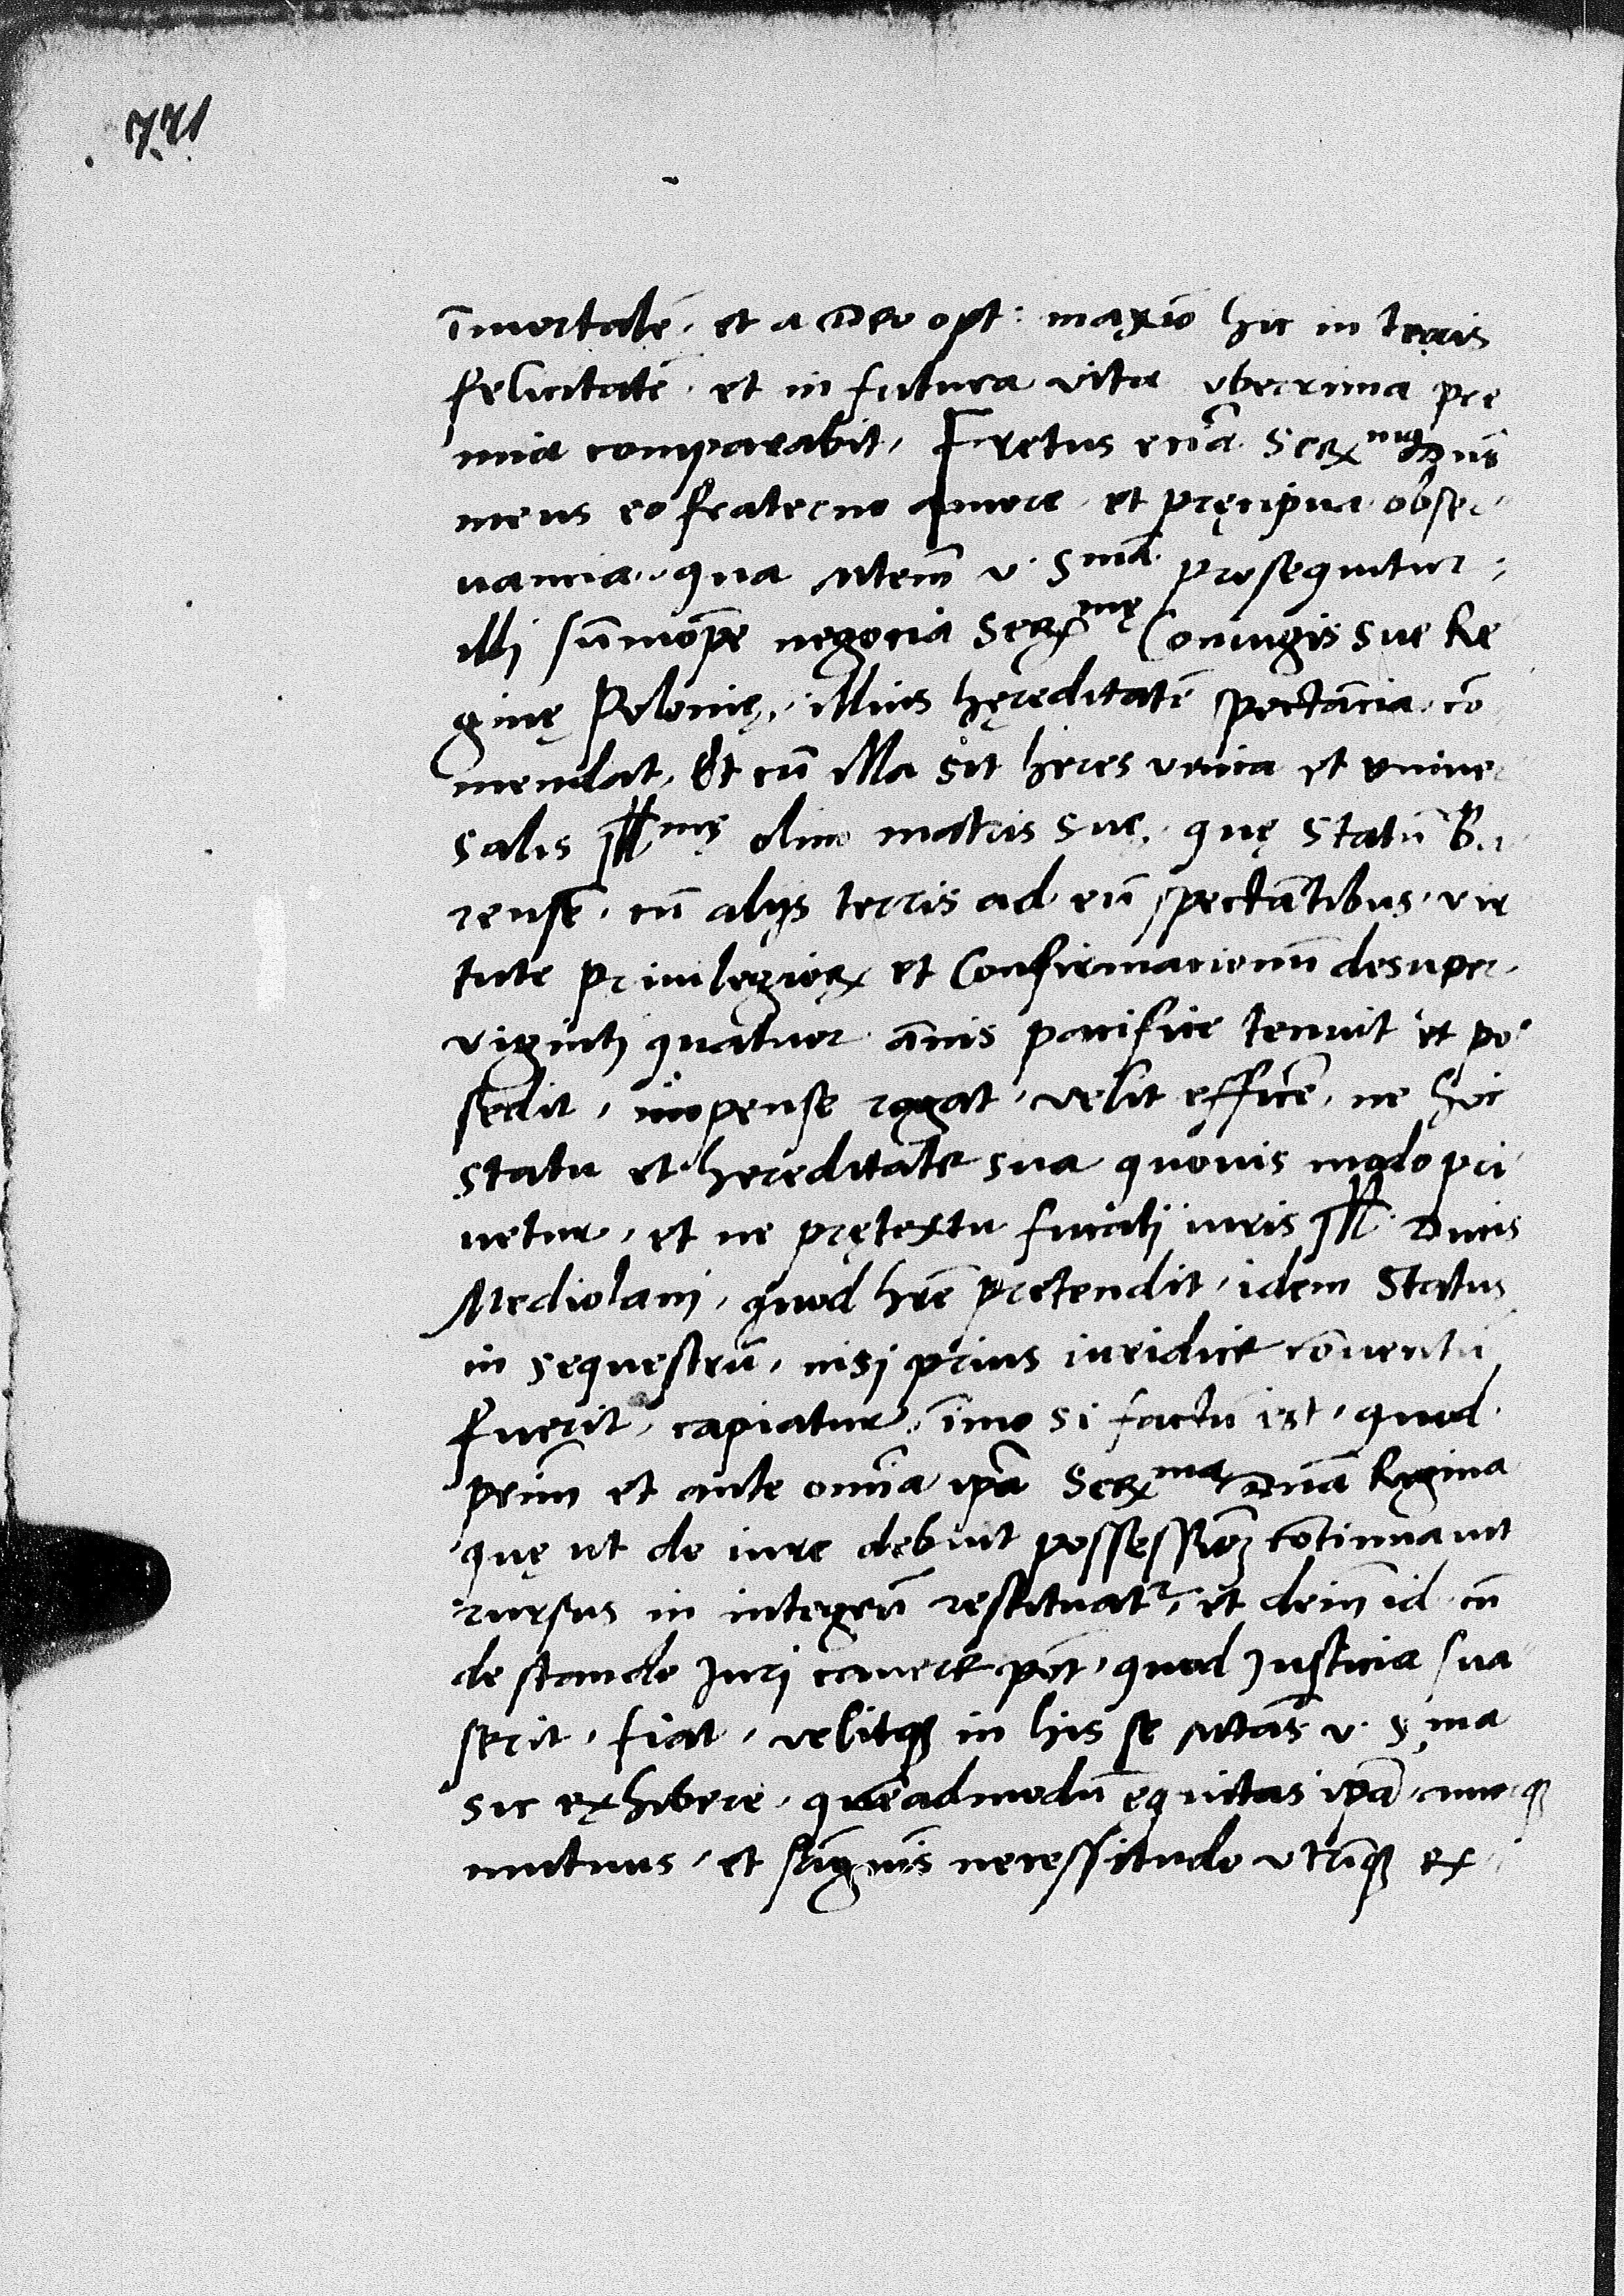 771
īmortalē, et a deo opt: maxīo hic in terris
felicitatē, et in futura vita vberrima prę
mia comparabit, Fretus eciā Serꝫmus dn̄s
meus eo fraterno amore et pręcipua obser
uancia, qua Mtem̄ v. Smā prosequitur,
illi sūmoꝑe negocia Serꝫmę Coniugis suę Re
ginę Polonię, illius hęreditatē spectācia, cō
mendat, Et cū illa sit heres vnica et vniuer
salis Illmę olim matris suę, quę statū Ba
rensē, cū alijs terris ad eū spectātibus, vir
tute priuilegioꝝ et Confirmacionum desuper,
viginti quatuor ānis pacifice tenuit et pos
sedit, impense rogat, velit efficē, ne hoc
statu et hereditate sua quouis modo pri
uetur, et ne prętextu fucati iuris Ill. Ducis
Mediolani, quod hr̄e pretendit, idem Status
in sequestrū, nisi prius iuridice cōuentū
fuerit, capiatur, īmo si factū est, quod
primū et ante omnia ipā Serꝫma Dnā Regina
quę ut de iure debuit possessionē cōtinuauit
rursus in integrū restituatr, et dein id cū
de stando Juri cauere pot, quod Justicia sua
serit, fiat, velitqꝫ in his se Mtas v. S. ma
sic exhibere, quēadmodū ęquitas ipā, amorqꝫ
mutuus, et sāguis necessitudo vtrāqꝫ ex